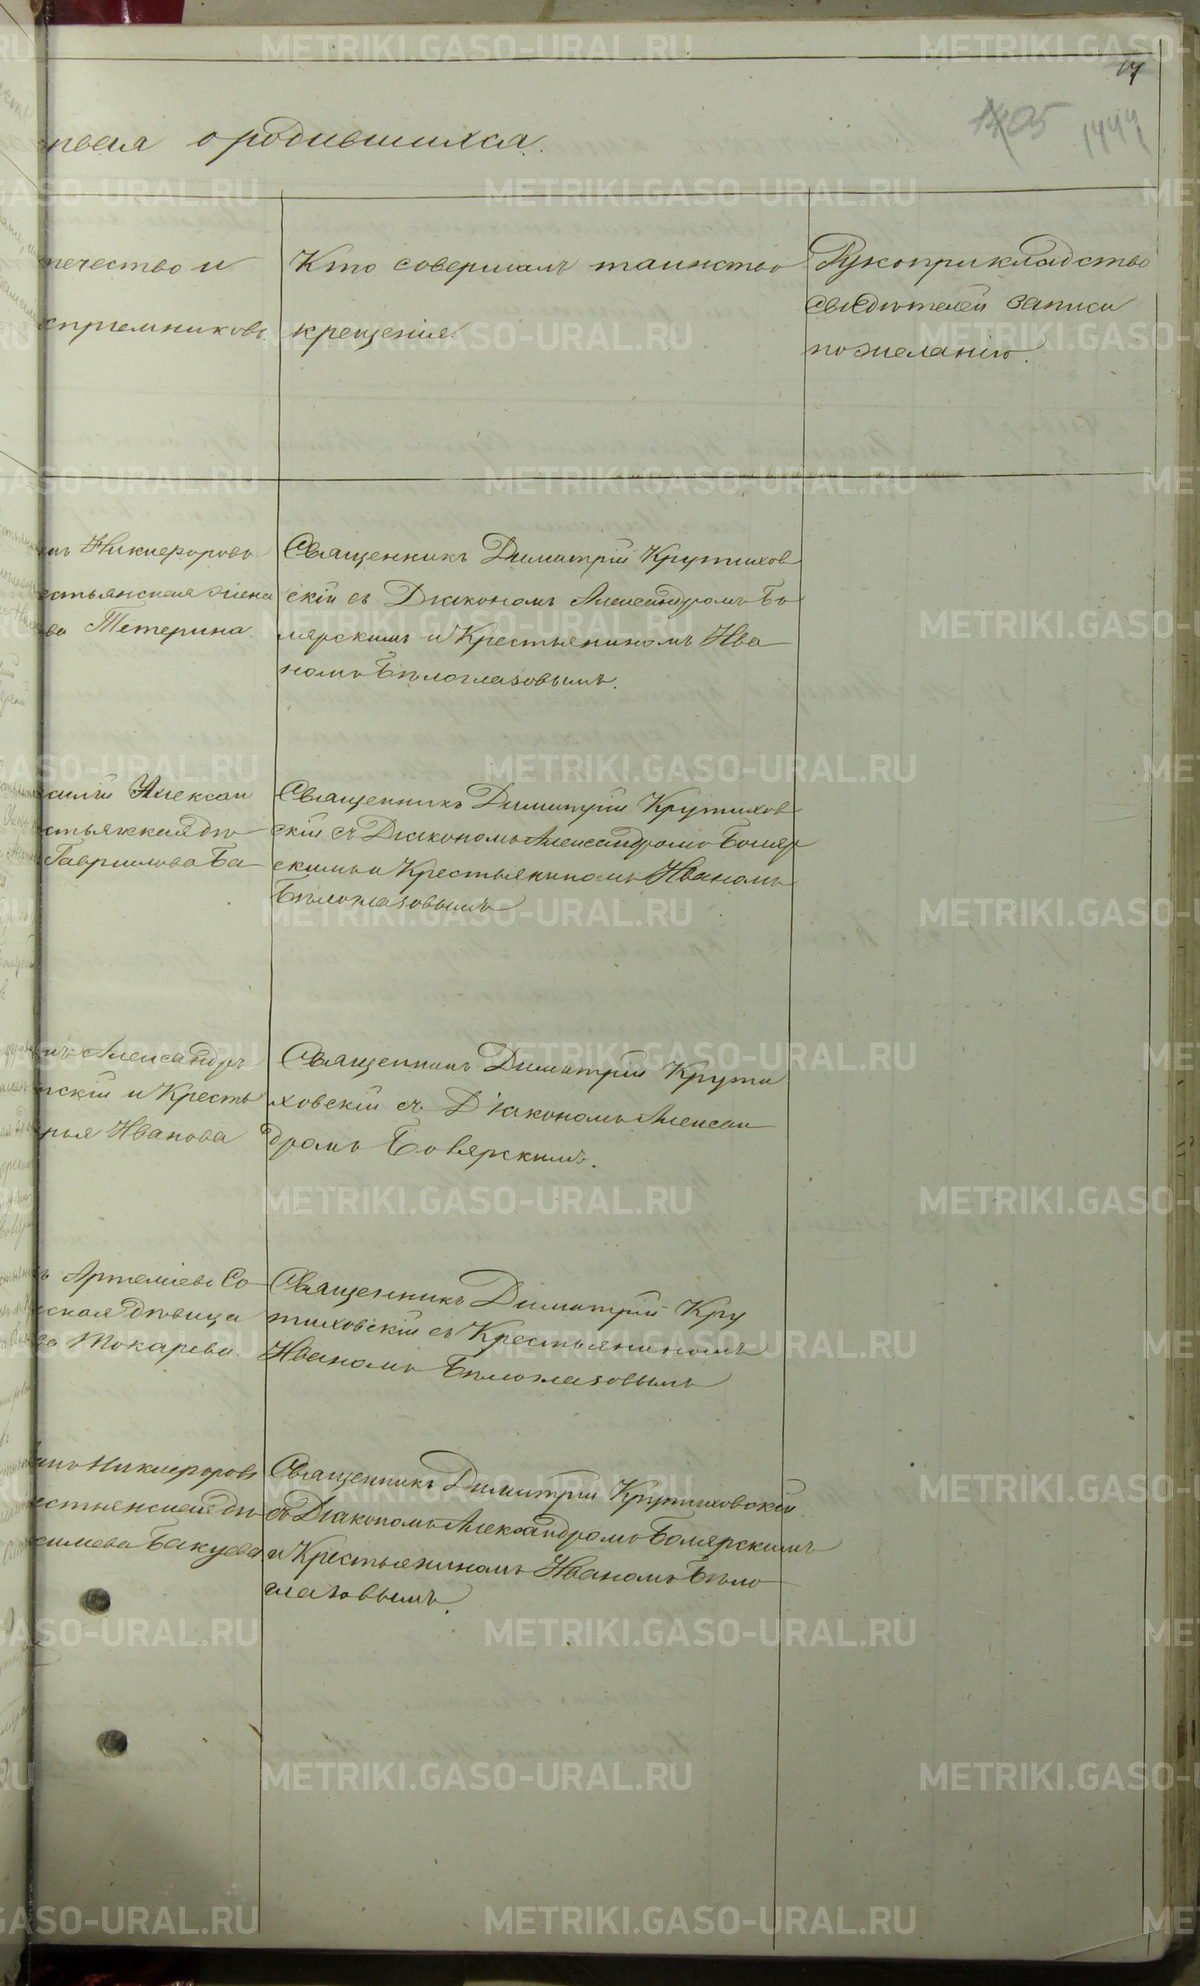 о родившихся.
1405 1444
Кто совершалъ таинство
крещенія.
Рукоприкладство
свѣдѣтелей записи
по желанію.
Никифоровъ
жена
Тетерина.
Священникъ Димитрій Крутихов
скій съ Діакономъ Александромъ Бо
лярскимъ и Крестьяниномъ Ива
номъ Бѣлоглазовымъ.
Алексан
Гаврилова Ба
Священникъ Димитрій Крутихов
скій съ Діакономъ Александромъ Боляр
скимъ и Крестьяниномъ Иваномъ
Бѣлоглазовымъ
Александръ
и Кресть
Иванова
Священникъ Димитрій Крути
ховскій съ Діакономъ Алексан
дромъ Боярскимъ.
Артеміевъ Со
дѣвица
Токарева.
Священникъ Димитрій Кру
тиховскій съ Крестьяниномъ
Иваномъ Бѣлоглазовымъ
Никифоровъ
Бакуева
Священникъ Димитрій Крутиховскій
съ Діакономъ Александромъ Болярскимъ
и Крестьяниномъ Иваномъ Бѣло
глазовымъ.
METRIKI.GASO-URAL.RU